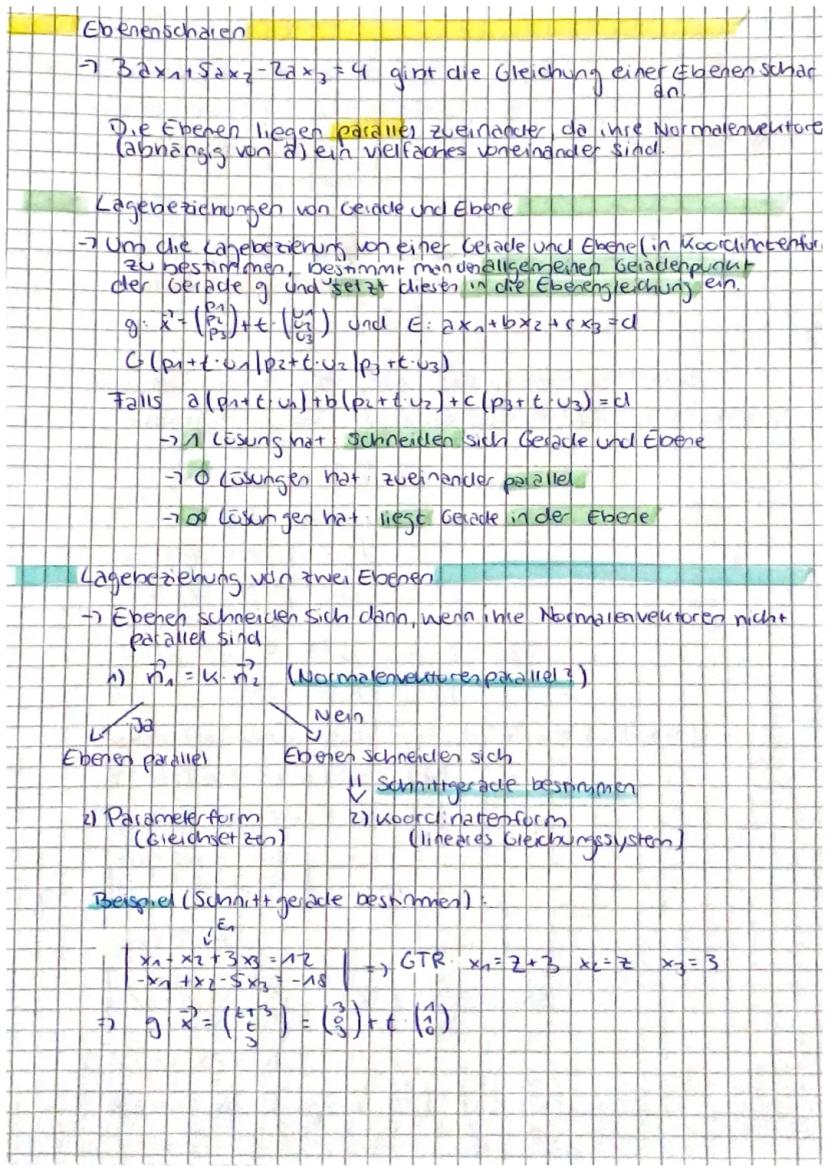 Ebenenscharen
→ 3ax₁+5ax₂-2ax₃=4 gibt die Gleichung einer Ebenenschar
an.
Die Ebenen liegen parallel zueinander, da ihre Normalenvektore
(abhängig von a) ein vielfaches voneinander sind.
Lagebeziehungen von Gerade und Ebene
→ Um die Lagebeziehung von einer Gerade und Ebene (in Koordinatenfor
zu bestimmen, bestimmt man den allgemeinen Geradenpunkt
der Gerade g und setzt diesen in die Ebenengleichung ein.
g: x⃗ = (p₁ p₂ p₃) + t · (u₁ u₂ u₃) und E: ax₁+bx₂+cx₃=d
G (p₁+t·u₁|p₂+t·u₂|p₃+t·u₃)
Falls a(p₁+t·u₁)+b(p₂+t·u₂)+c(p₃+t·u₃)=d
→ 1 Lösung hat: schneiden sich Gerade und Ebene
→ 0 Lösungen hat: zueinander parallel
→ ∞ Lösungen hat: liegt Gerade in der Ebene
Lagebeziehung von zwei Ebenen
→ Ebenen schneiden sich dann, wenn ihre Normalenvektoren nicht
parallel sind
1) n⃗₁ = k · n⃗₂ (Normalenvektoren parallel?)
Ja Nein
Ebenen parallel Ebenen schneiden sich
⇓ Schnittgerade bestimmen
2) Parameterform 2) Koordinatenform
(Gleichsetzen) (lineares Gleichungssystem)
Beispiel (Schnittgerade bestimmen):
↓ E₁
| x₁-x₂+3x₃=12 | ⇒ GTR: x₁=z+3 x₂=z x₃=3
| -x₁+x₂-5x₃=-18 |
⇒ g: x⃗ = (t+3 t 3) = (3 0 3) + t · (1 1 0)